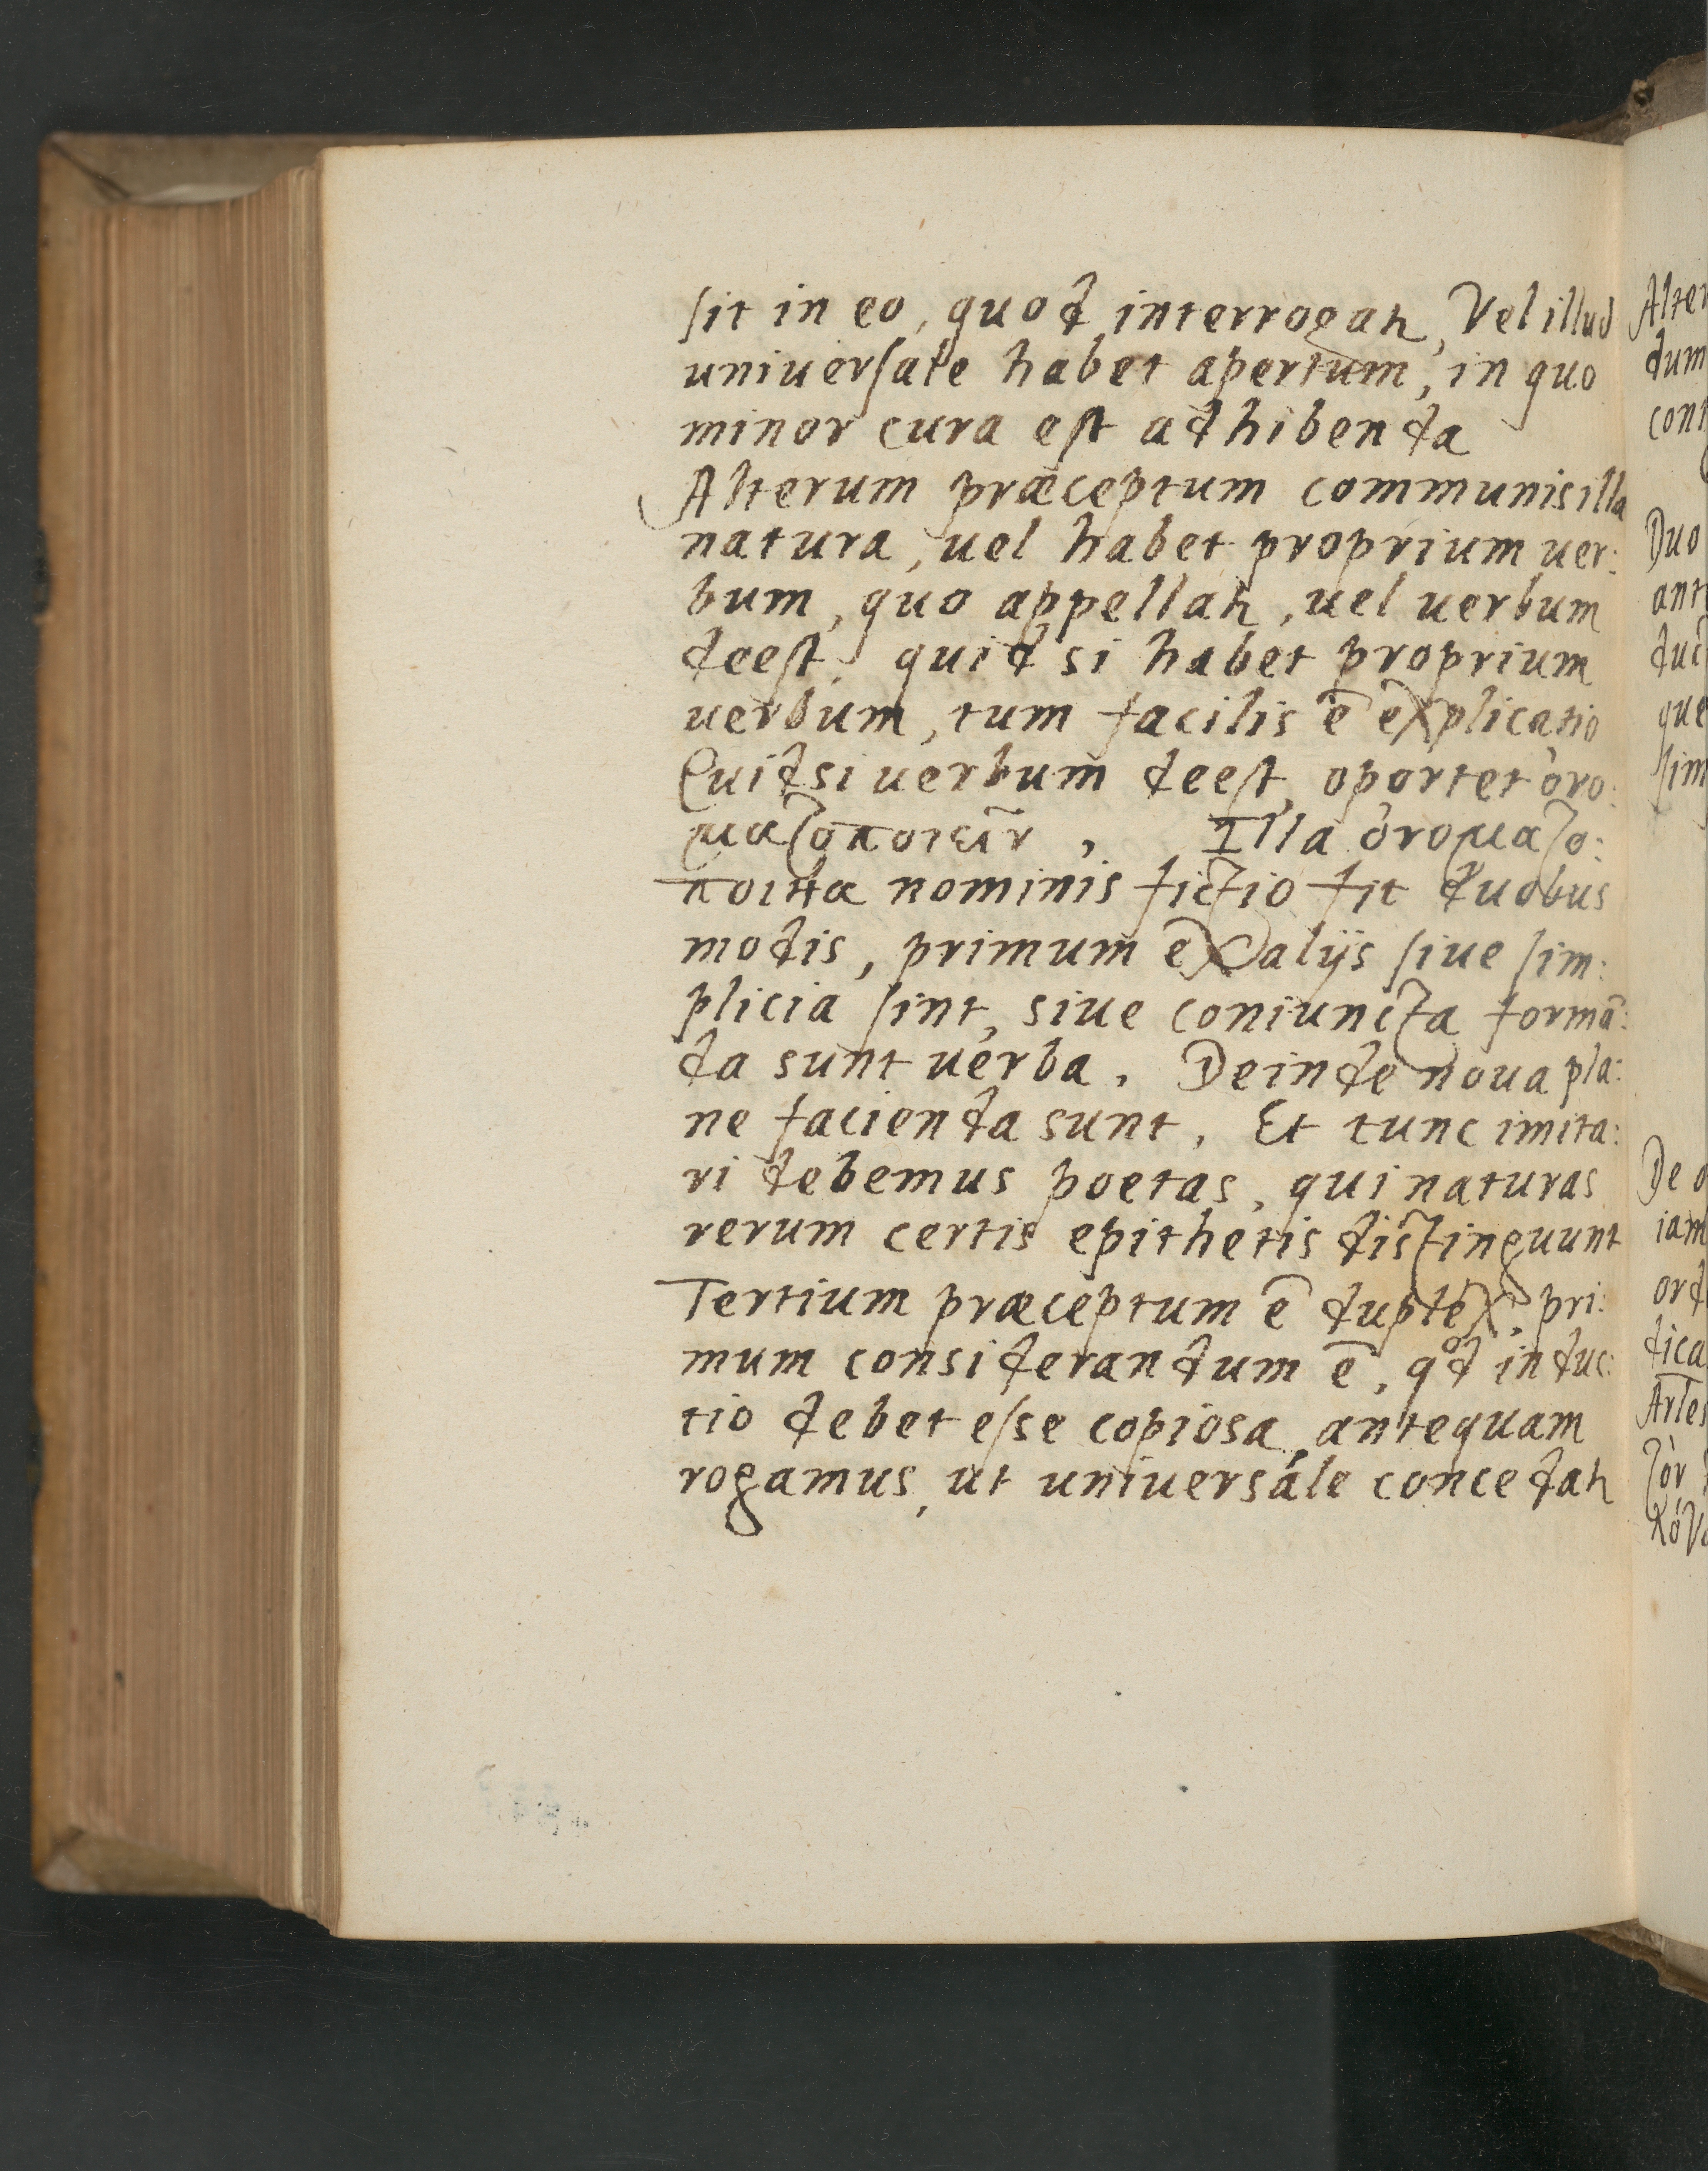 sit in eo, quod interrogat̃, Vel illud
uniuersale habet apertum, in quo
minor cura est adhibenda
Alterum præceptum communis illa
natura, uel habet proprium uer:
bum, quo appellat̃, uel uerbum
deest, quid si habet proprium
uerbum, tum facilis ē explicatio
Quid si uerbum deest, oportet ὀνο:
ματοποιεῖν, Illa ὀνοματο:
ποιΐα nominis fictio fit duobus
modis, primum ex alijs siue sim:
plicia sint, siue coniuncta formā:
da sunt uerba. Deinde noua pla:
ne facienda sunt, Et tunc imita:
ri debemus poetas, qui naturas
rerum certis epithetis distinguunt
Tertium præceptum ē duplex, pri:
mum considerandum ē, qᵒd induc:
tio debet esse copiosa, antequam
rogamus, ut uniuersále concedat̃
Alter
dum
Duo
De
iam